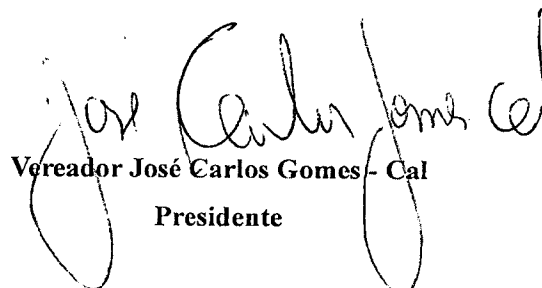 José Carlos Gomes Cal
Vereador José Carlos Gomes - Cal
Presidente